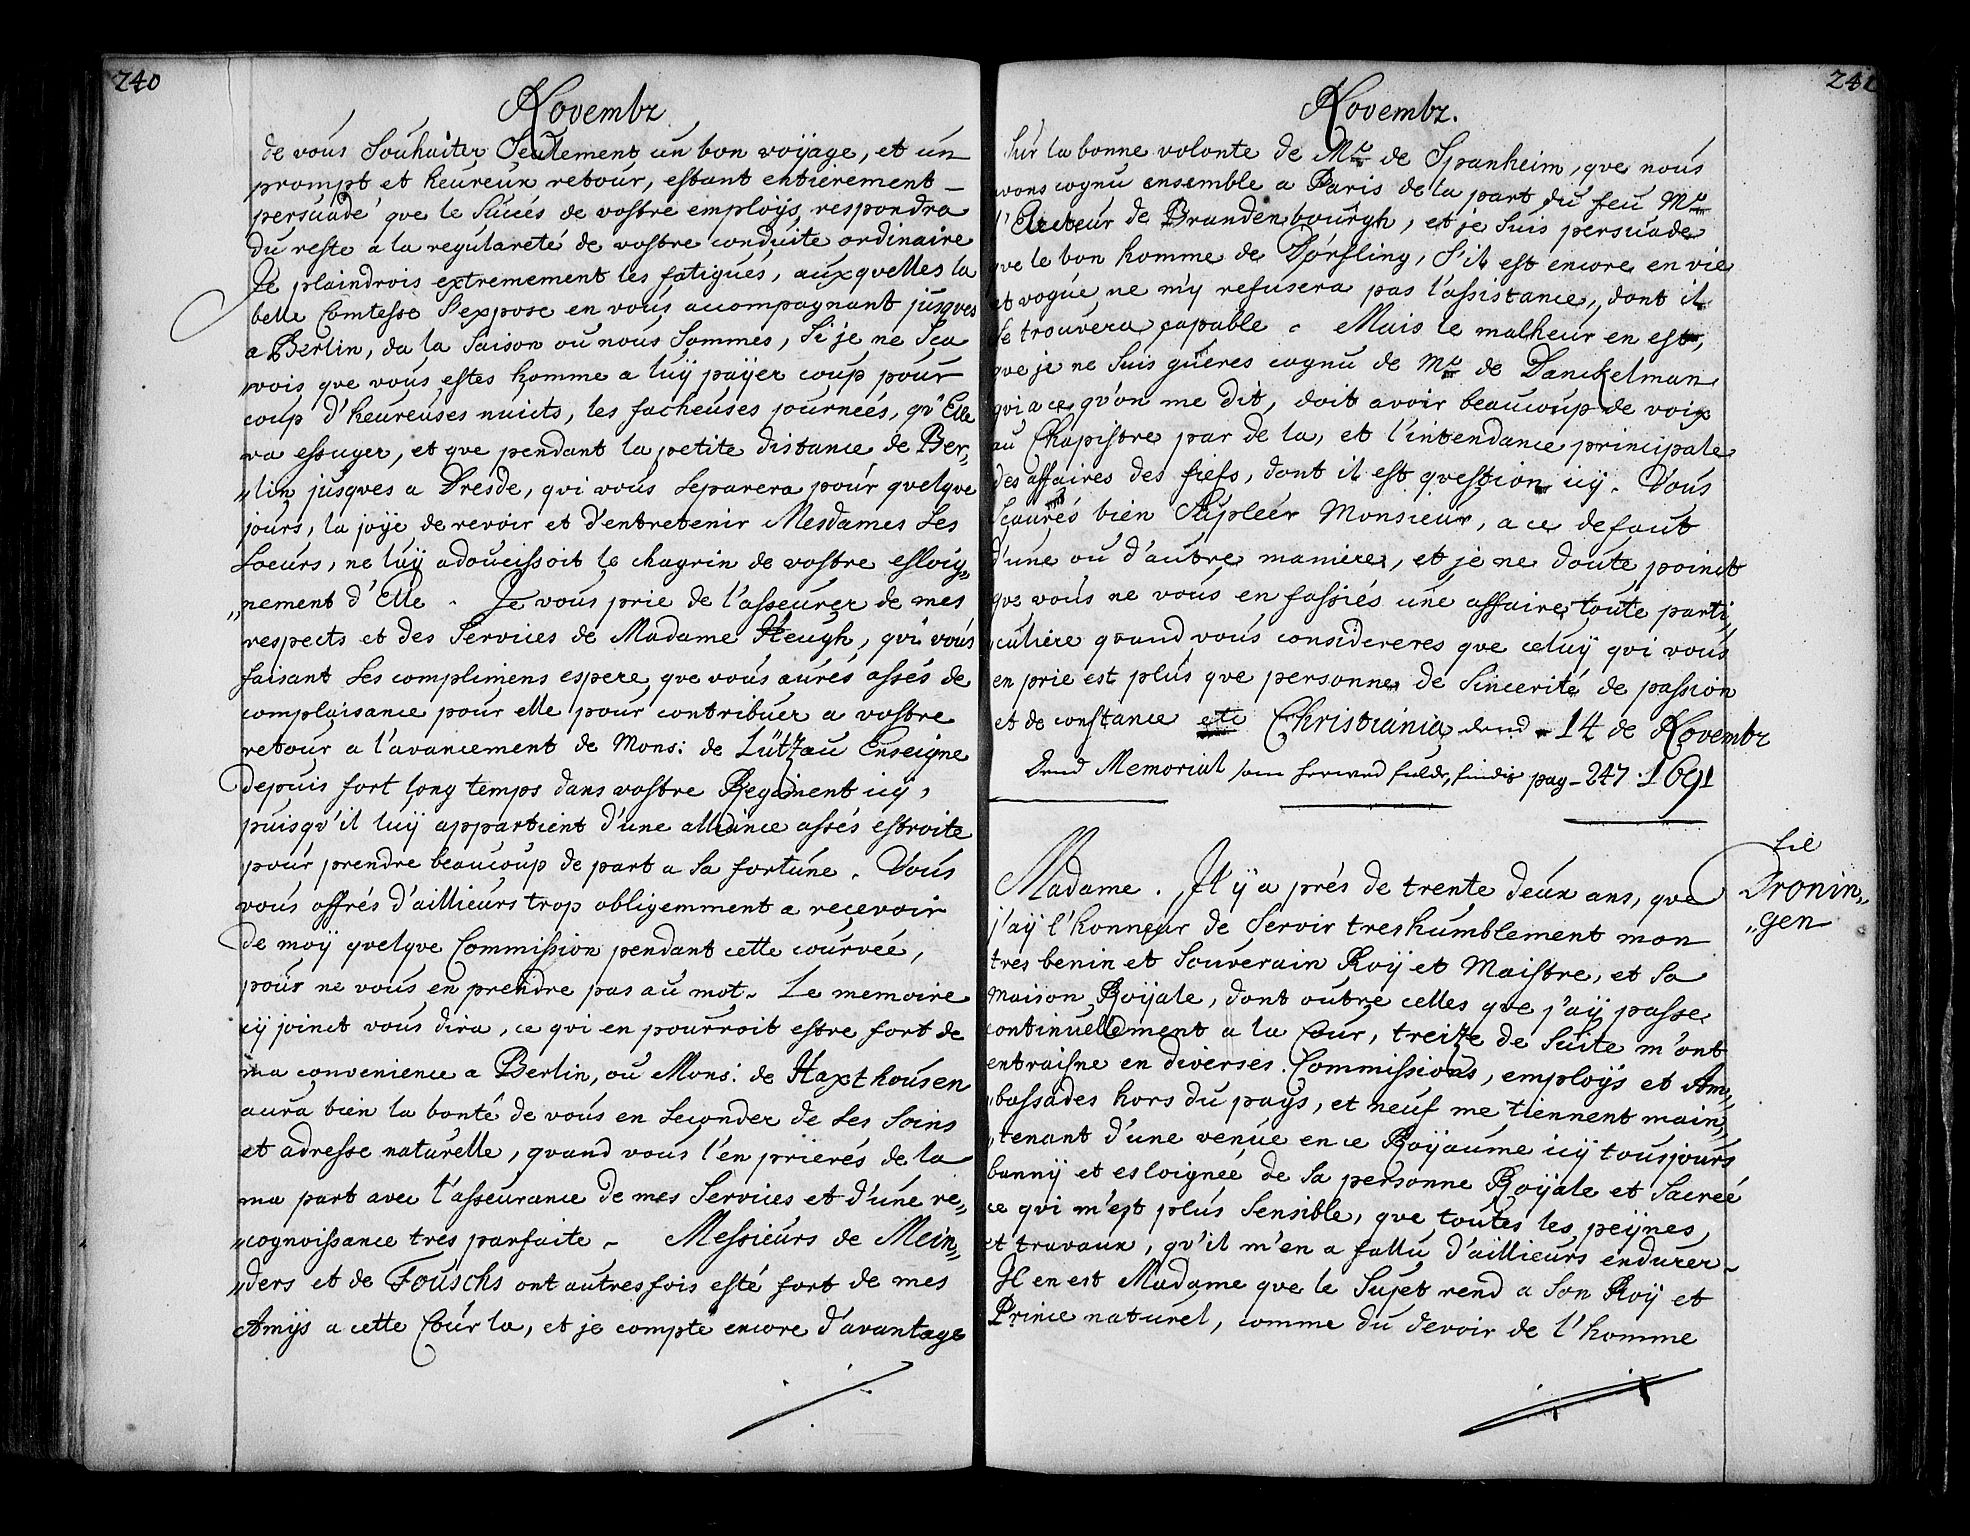 240
Novembr
de vous Souhaiter Seulement un bon voÿage, et un
prompt et heureux retour, estant entierement
persuadé que le Sucés de vostre employs, respondra
du reste a la regulareté de vostre conduite ordinaire
Je plaindrois extremement les fatigues, auxquelles la
belle Comtesse S'expose en vous accompagnant jusques
a Berlin, da la Saison ou nous Sommes, Si je ne Sça
„vois que vous estes homme a luÿ paÿer coup pour
coup d'heureuses nuicts, les facheuses journeés, qu'Elle
va essuyer, et que pendant la petite distance de Ber„
„lin jusques a Dresde, qui vous Separera pour quelque
jours, la joÿe de revoir et d'entretenir Mesdames Ses
Soeurs, ne luÿ adoucissoit le chagrin de vostre esloig„
„nement d'Elle. Je vous prie de l'asseurer de mes
respects et des Services de Madame Heugh, qui vous
faisant Ses complimens espere que vous aurés assés de
complaisance pour elle pour contribuer a vostre
retour a l'avancement de Mons: de Lützau Enseigne
depuis fort long temps dans vostre Regiment icy,
puisqu'il luÿ appartient d'une alliance assés estroite
pour prendre beaucoup de part a Sa fortune. Vous
vous offrés d'aillieurs trop obligemment a reçevoir
de moÿ quelque Commission pendant cette courveé,
pour ne vous en prendre pas au mot. Le memoire
cy joinct vous dira, ce qui en pourroit estre fort de
ma convenience a Berlin, ou Mons: de Haxthousen
aura bien la bonté de vous en Seconder de Ses Soins
et adresse naturelle, quand vous l'en prierés de la
ma part avec l'asseurance de mes Services et d'une re„
„cognoissance tres parfaite. Messieurs de Mein„
„ders et de Fouschs ont autresfois esté fort de mes
Amÿs a cette Cour la, et je compte encore d'avantage
241
Novembr.
Sur la bonne volonte de Mr de Spanheim, que nous
avons cognu ensemble a Paris de la part du feu Mr
l'Electeur de Brandenbourgh, et je Suis persuade
que le bon homme de Dörfling, S'il est encore en vie
et vogue ne m'y refusera pas l'assistance, dont il
Se trouvera capable. Mais le malheur en est,
que je ne Suis guères cognu de Mr de Danckelman
qui a ce qu'on me dit, doit avoir beaucoup de voix
au Chapistre par de la, et l'intendance principale
des affaires des fiefs, dont il est question icÿ. Vous
Scaurés bien Supleér Monsieur, a ce defaut
d'une ou d'autre maniere, et je ne doute poinct
que vous ne vous en fassiés une affaire toute parti„
„culiere quand vous considereres que celuÿ qui vous
en prie est plus que personne de Sincerité de passion
et de constance etc Christiania dend 14 de Novembr
Dend Memorial som herved fulde, findis pag-247. 1691
til
Dronin„
„gen
Madame. Il ÿ a prés de trente deux ans, que
j'aÿ l'honneur de Servir treshumblement mon
tres benin et Souverain Roÿ et Maistre, et Sa
Maison Roÿale, dont outre celles que j'aÿ passe
continuellement a la Cour, treize de Suite m'ont
entraisne en diverses Commissions, employs et Am„
„bassades hors du pays, et neuf me tiennent main„
„tenant d'une venue en ce Roÿaume icÿ tousjours
bannÿ et esloigneé de Sa personne Roÿale et Sacreé
ce qui m'est plus Sensible, que toutes les peÿnes
et travaux, qu'il m'en a fallu d'aillieurs endurer.
Il en est Madame que le Sujet rend a Son Roÿ et
Prince naturel, comme du devoir de l'homme